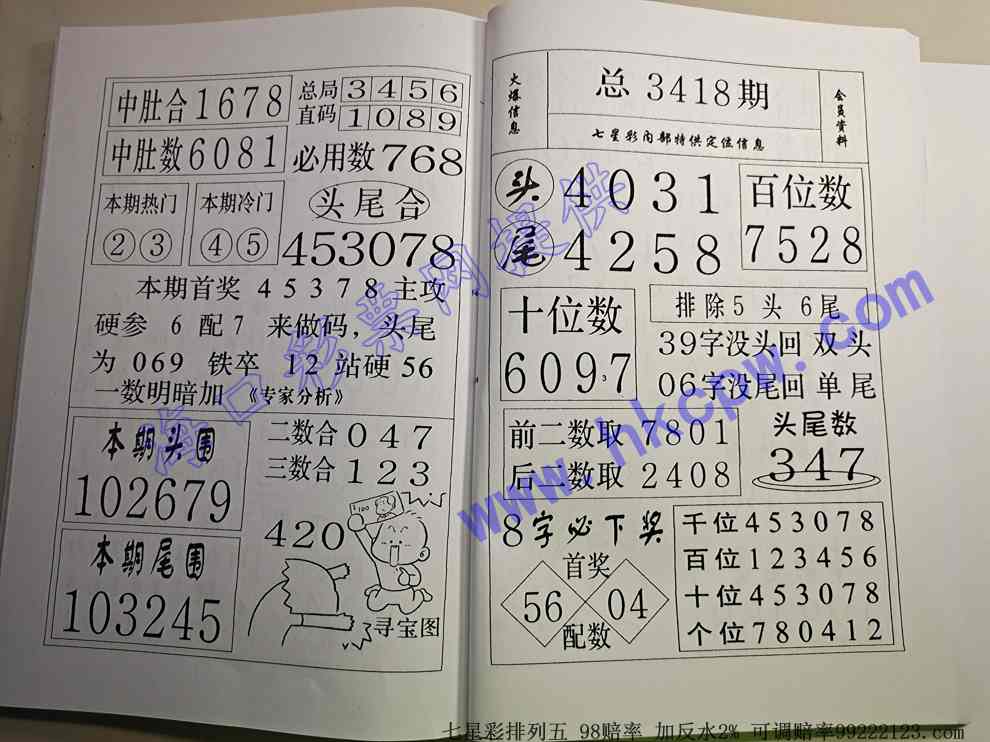 中肚合1678
总局 3456
直码 1089
中肚数6081
必用数768
本期热门
②③
本期冷门
④⑤
头尾合
453078
本期首奖 45378 主攻
硬参 6 配7 来做码，头尾
为 069 铁卒 12 站硬 56
一数明暗加 《专家分析》
本期头围
102679
二数合 047
三数合 123
本期尾围
103245
420
寻宝图
火爆信息
总 3418期
七星彩内部特供定位信息
会员资料
头 4031
尾 4258
百位数
7528
十位数
6097
排除5 头 6尾
39字没头回 双 头
06字没尾回 单 尾
前二数取 7801
后二数取 2408
头尾数
347
8字必下奖
首奖
56 04
配数
千位453078
百位123456
十位453078
个位780412
海口彩票网提供
www.hkcpw.com
七星彩排列五 98赔率 加反水2% 可调赔率99222123.com